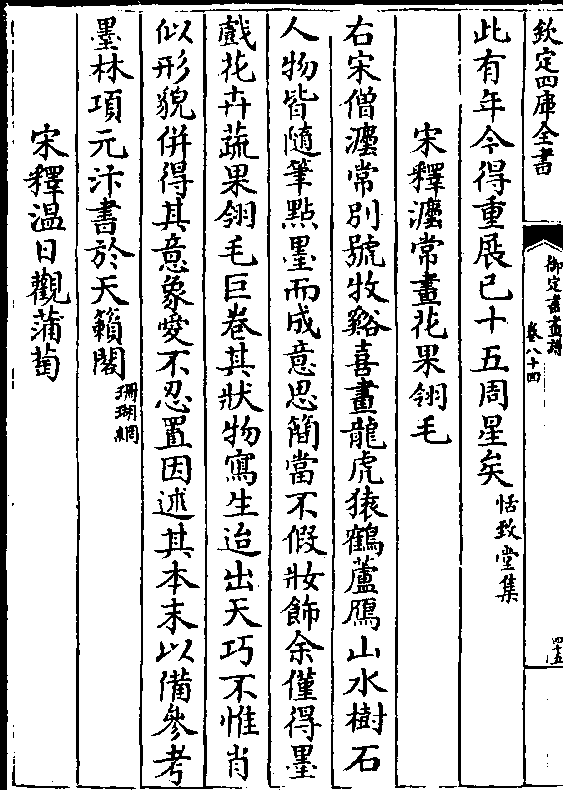 欽定四庫全書
御定書畫譜
卷八十四
四十五
此有年今得重展已十五周星矣恬致堂集
宋釋瀍常畫花果翎毛
右宋僧瀍常別號牧谿喜畫龍虎猿鶴蘆鴈山水樹石
人物皆隨筆點墨而成意思簡當不假妝飾余僅得墨
戲花卉蔬果翎毛巨卷其狀物寫生迨出天巧不惟肖
似形貌併得其意象愛不忍置因述其本末以備參考
墨林項元汴書於天籟閣珊瑚網
宋釋溫日觀蒲萄